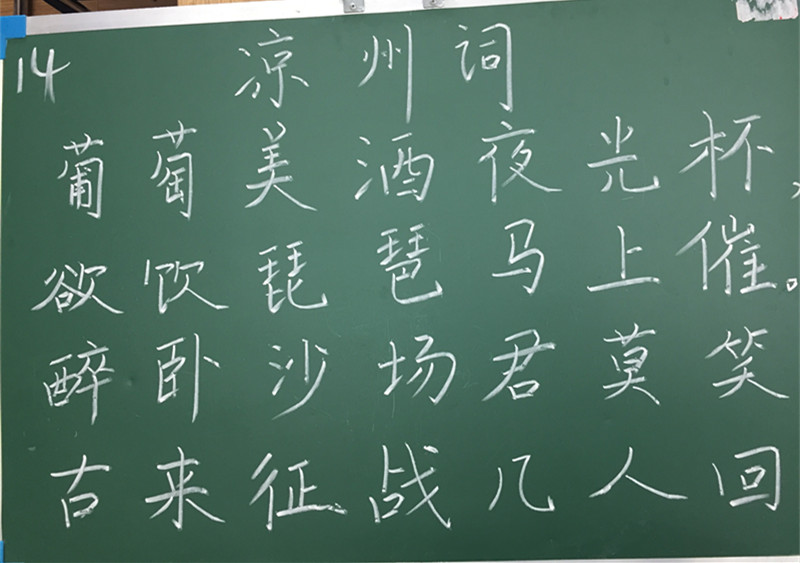 14 凉州词
葡萄美酒夜光杯,
欲饮琵琶马上催。
醉卧沙场君莫笑
古来征战几人回